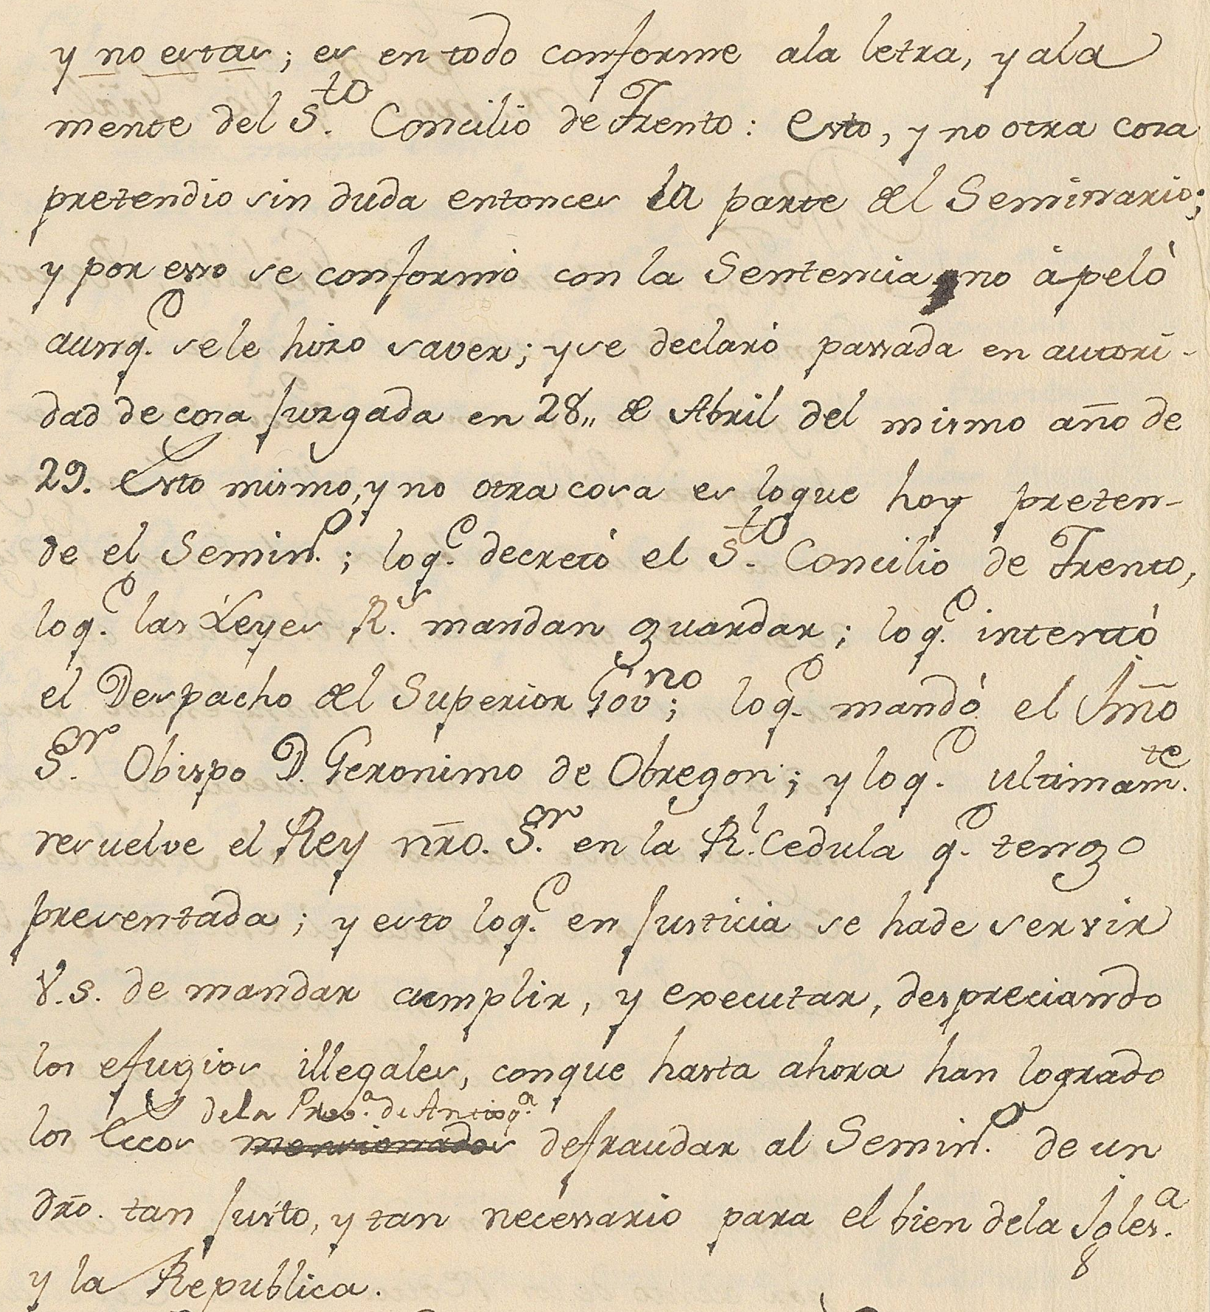 y no estas; es en todo conforme ala letra, y ala
mente del S.to Concilio de Trento: Esto, y no otra cosa
pretendio sin duda entonces la parte del Seminario;
y por esso se conformò con la Sentencia, no àpelò
aunq.e sele hizo saver; y se declarò passada en autori-
dad de cosa juzgada en 28,, de Abril del mismo año de
29. Esto mismo, y no otra cosa es loque hoy preten-
de el Semin.o; loq.e decretò el S.to Concilio de Trento,
loq.e las Leyes R.s mandan guardar; loq.e intentò
el Despacho del Superior Gov.no; loq.e mandò el Illm̃o
S.or Obispo D. Geronimo de Obregon; y loq.e ultimam.te
resuelve el Rey nr̃o. S.or en la R.l Cedula q.e tengo
presentada; y esto loq.e en justicia se hade servir
V.S. de mandar cumplir, y executar, despreciando
los efugios illegales, conque hasta ahora han logrado
dela Prov.a de Antioq.a
los Ecc.os mencionados defraudar al Semin.o de un
dr̃o. tan justo, y tan necessario para el bien dela Igles.a
y la Republica.